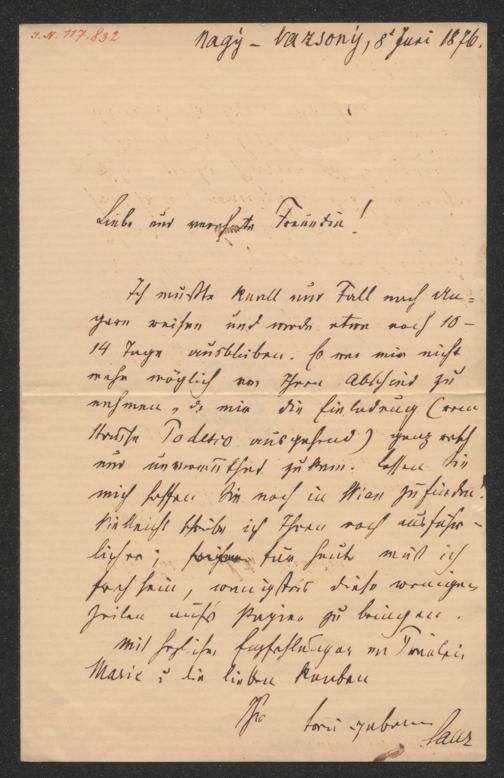 I.N. 117.832
Nagy-Vazsony, 8t Juni 1876.
Liebe und verehrte Freundin!
Ich mußte Knall und Fall nach Un=
garn reisen und werde etwa noch 10–
14 Tage ausbleiben. Es war mir nicht
mehr möglich von Ihnen Abschied zu
nehmen, da mir die Einladung (vom
Hause Todesco ausgehend) ganz rasch
und unvermuthet zukam. Lassen Sie
mich hoffen Sie noch in Wien zu finden!
Vielleicht schreibe ich Ihnen noch ausführ-
licher; für heute muß ich
froh sein, wenigstens diese wenigen
Zeilen aufs Papier zu bringen.
Mit herzlichen Empfehlungen an Fräulein
Marie & die lieben Knaben
Ihr treu ergebener
Saar